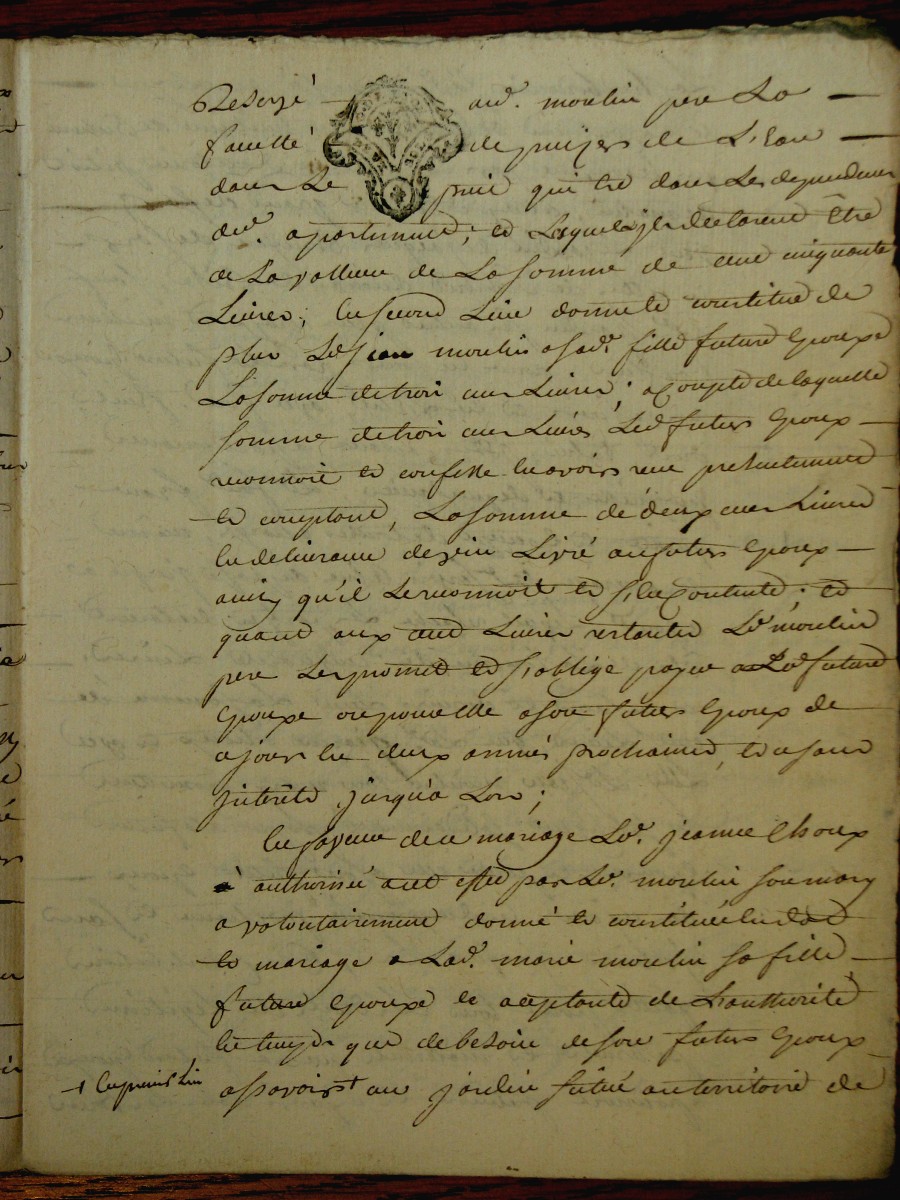 Reservé aud. moulin pere La
faculté de puizer de L'Eau
dans Le puit qui Est dans Les dependances
dud. apartement; et Lesquels ils declarent Être
de La valleur de La somme de cent cinquante
Livres; En second Lieu donne et constitue de
plus Led. jean moulin a sad. fille future Epouse
La somme de trois cens Livres; a compte de laquelle
somme de trois cens Livres Led. futur Epoux
reconnoit et confesse En avoir reçu presentement
et comptant, La somme de deux cens Livres
En deniers au futur Epoux
ainsy qu'il Le reconnoit et s'En Contente; et
quand aux cent Livres restantes Led. moulin
pere Les promet et s'oblige payer a Lad. future
Epouse ou pour elle a son futur Epoux de
a jour En deux années prochaines, et a sans
jnterêts jusqu'a Lors;
En faveur de ce mariage Lad. jeanne Choux
authorisée a cet effet par Led. moulin son mary
a volontairement donné et constitué En dot
et mariage a Lad. marie moulin sa fille
future Epouse et acceptante de L'authorité
En temps que de besoin de son futur Epoux
assavoir+ un jardin situé au territoire de
+ En premier Lieu